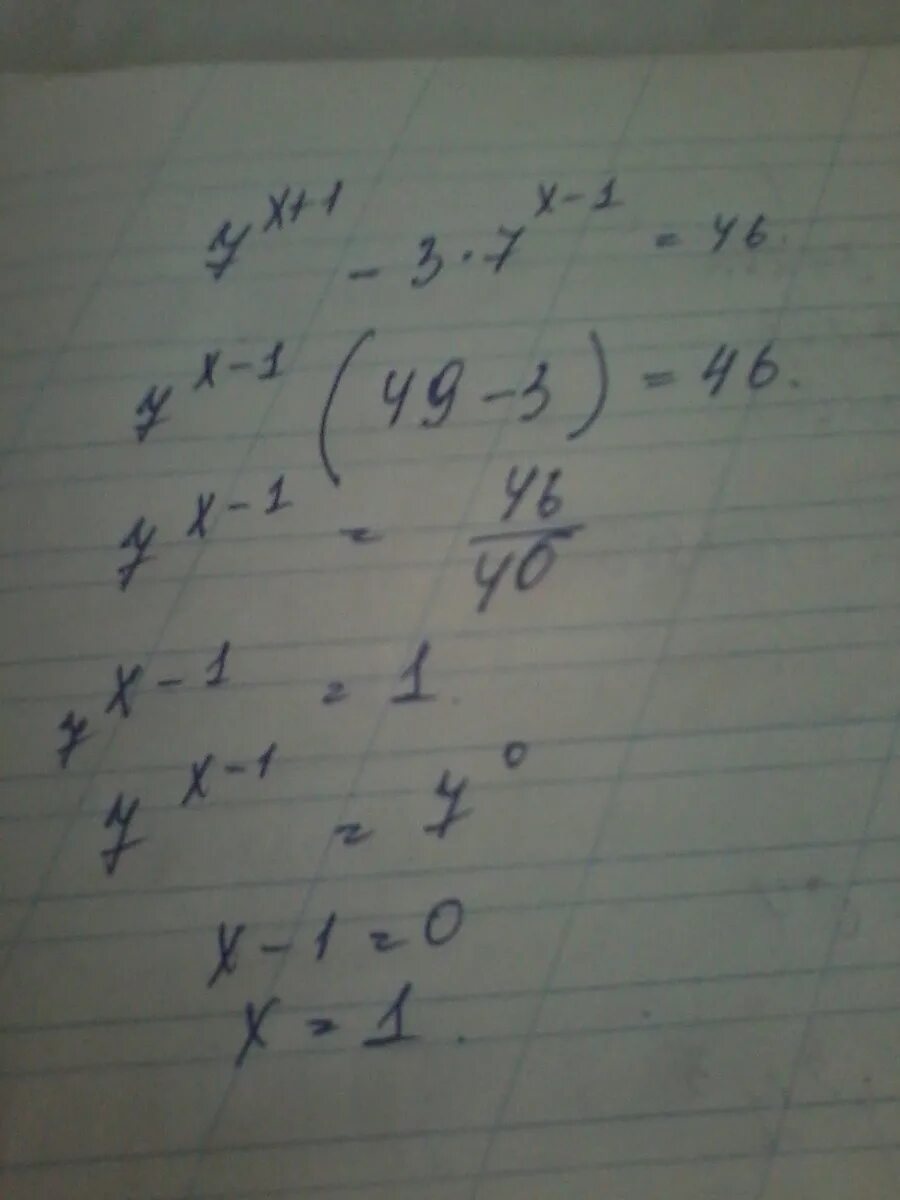 7^(x+1) - 3·7^(x-1) = 46.
7^(x-1) (49-3) = 46.
7^(x-1) = 46/46
7^(x-1) = 1.
7^(x-1) = 7^0
x-1=0
x=1.